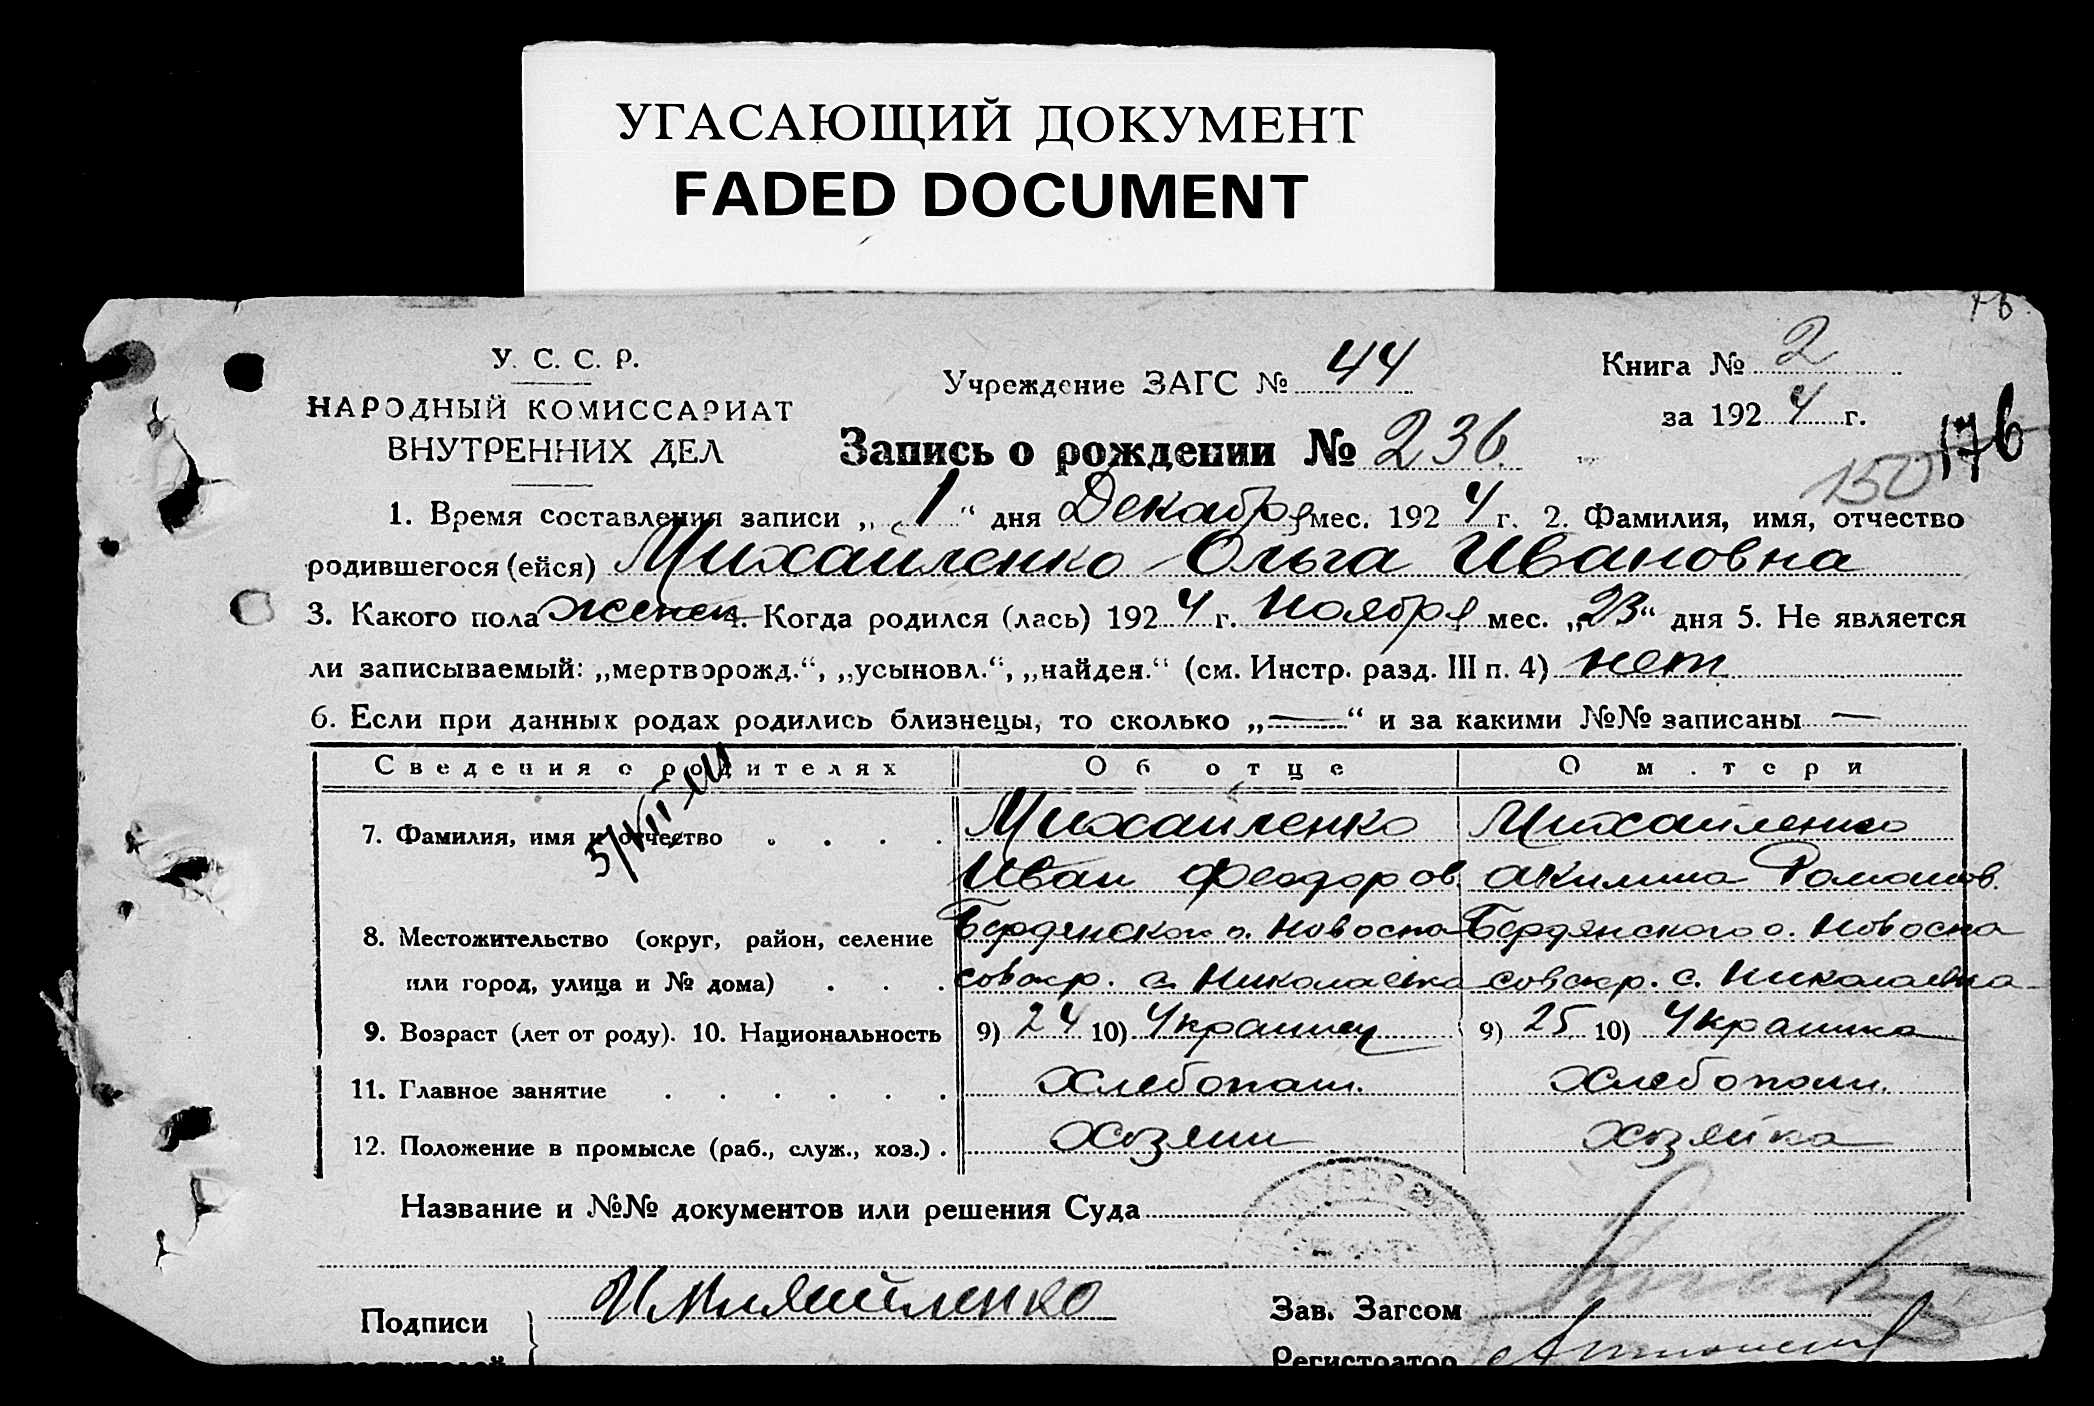 УГАСАЮЩИЙ ДОКУМЕНТ
FADED DOCUMENT
У. С. С. Р.
НАРОДНЫЙ КОМИССАРИАТ
ВНУТРЕННИХ ДЕЛ
Учреждение ЗАГС № 44
Книга № 2
за 1924 г.
Запись о рождении № 236
150
176
1. Время составления записи „1“ дня Декабря мес. 1924 г. 2. Фамилия, имя, отчество
родившегося (ейся) Михайленко Ольга Ивановна
3. Какого пола женск 4. Когда родился (лась) 1924 г. Ноября мес. „23“ дня 5. Не является
ли записываемый: „мертворожд.“, „усыновл.“, „найден.“ (см. Инстр. разд. III п. 4) нет
6. Если при данных родах родились близнецы, то сколько „—“ и за какими №№ записаны —
Сведения о родителях Об отце О матери
7. Фамилия, имя и отчество . . . . Михайленко Михайленко
Иван Феодоров. Акилина Романов.
8. Местожительство (округ, район, селение Бердянского о. Новоспа Бердянского о. Новоспа
или город, улица и № дома) . . . совскр. с. Николаевка совскр. с. Николаевка
9. Возраст (лет от роду). 10. Национальность 9) 24 10) Украинец 9) 25 10) Украинка
11. Главное занятие . . . . . . Хлебопаш. Хлебопаш.
12. Положение в промысле (раб., служ., хоз.) . Хозяин Хозяйка
Название и №№ документов или решения Суда
Подписи И Михайленко Зав. Загсом
заявителей Регистратор